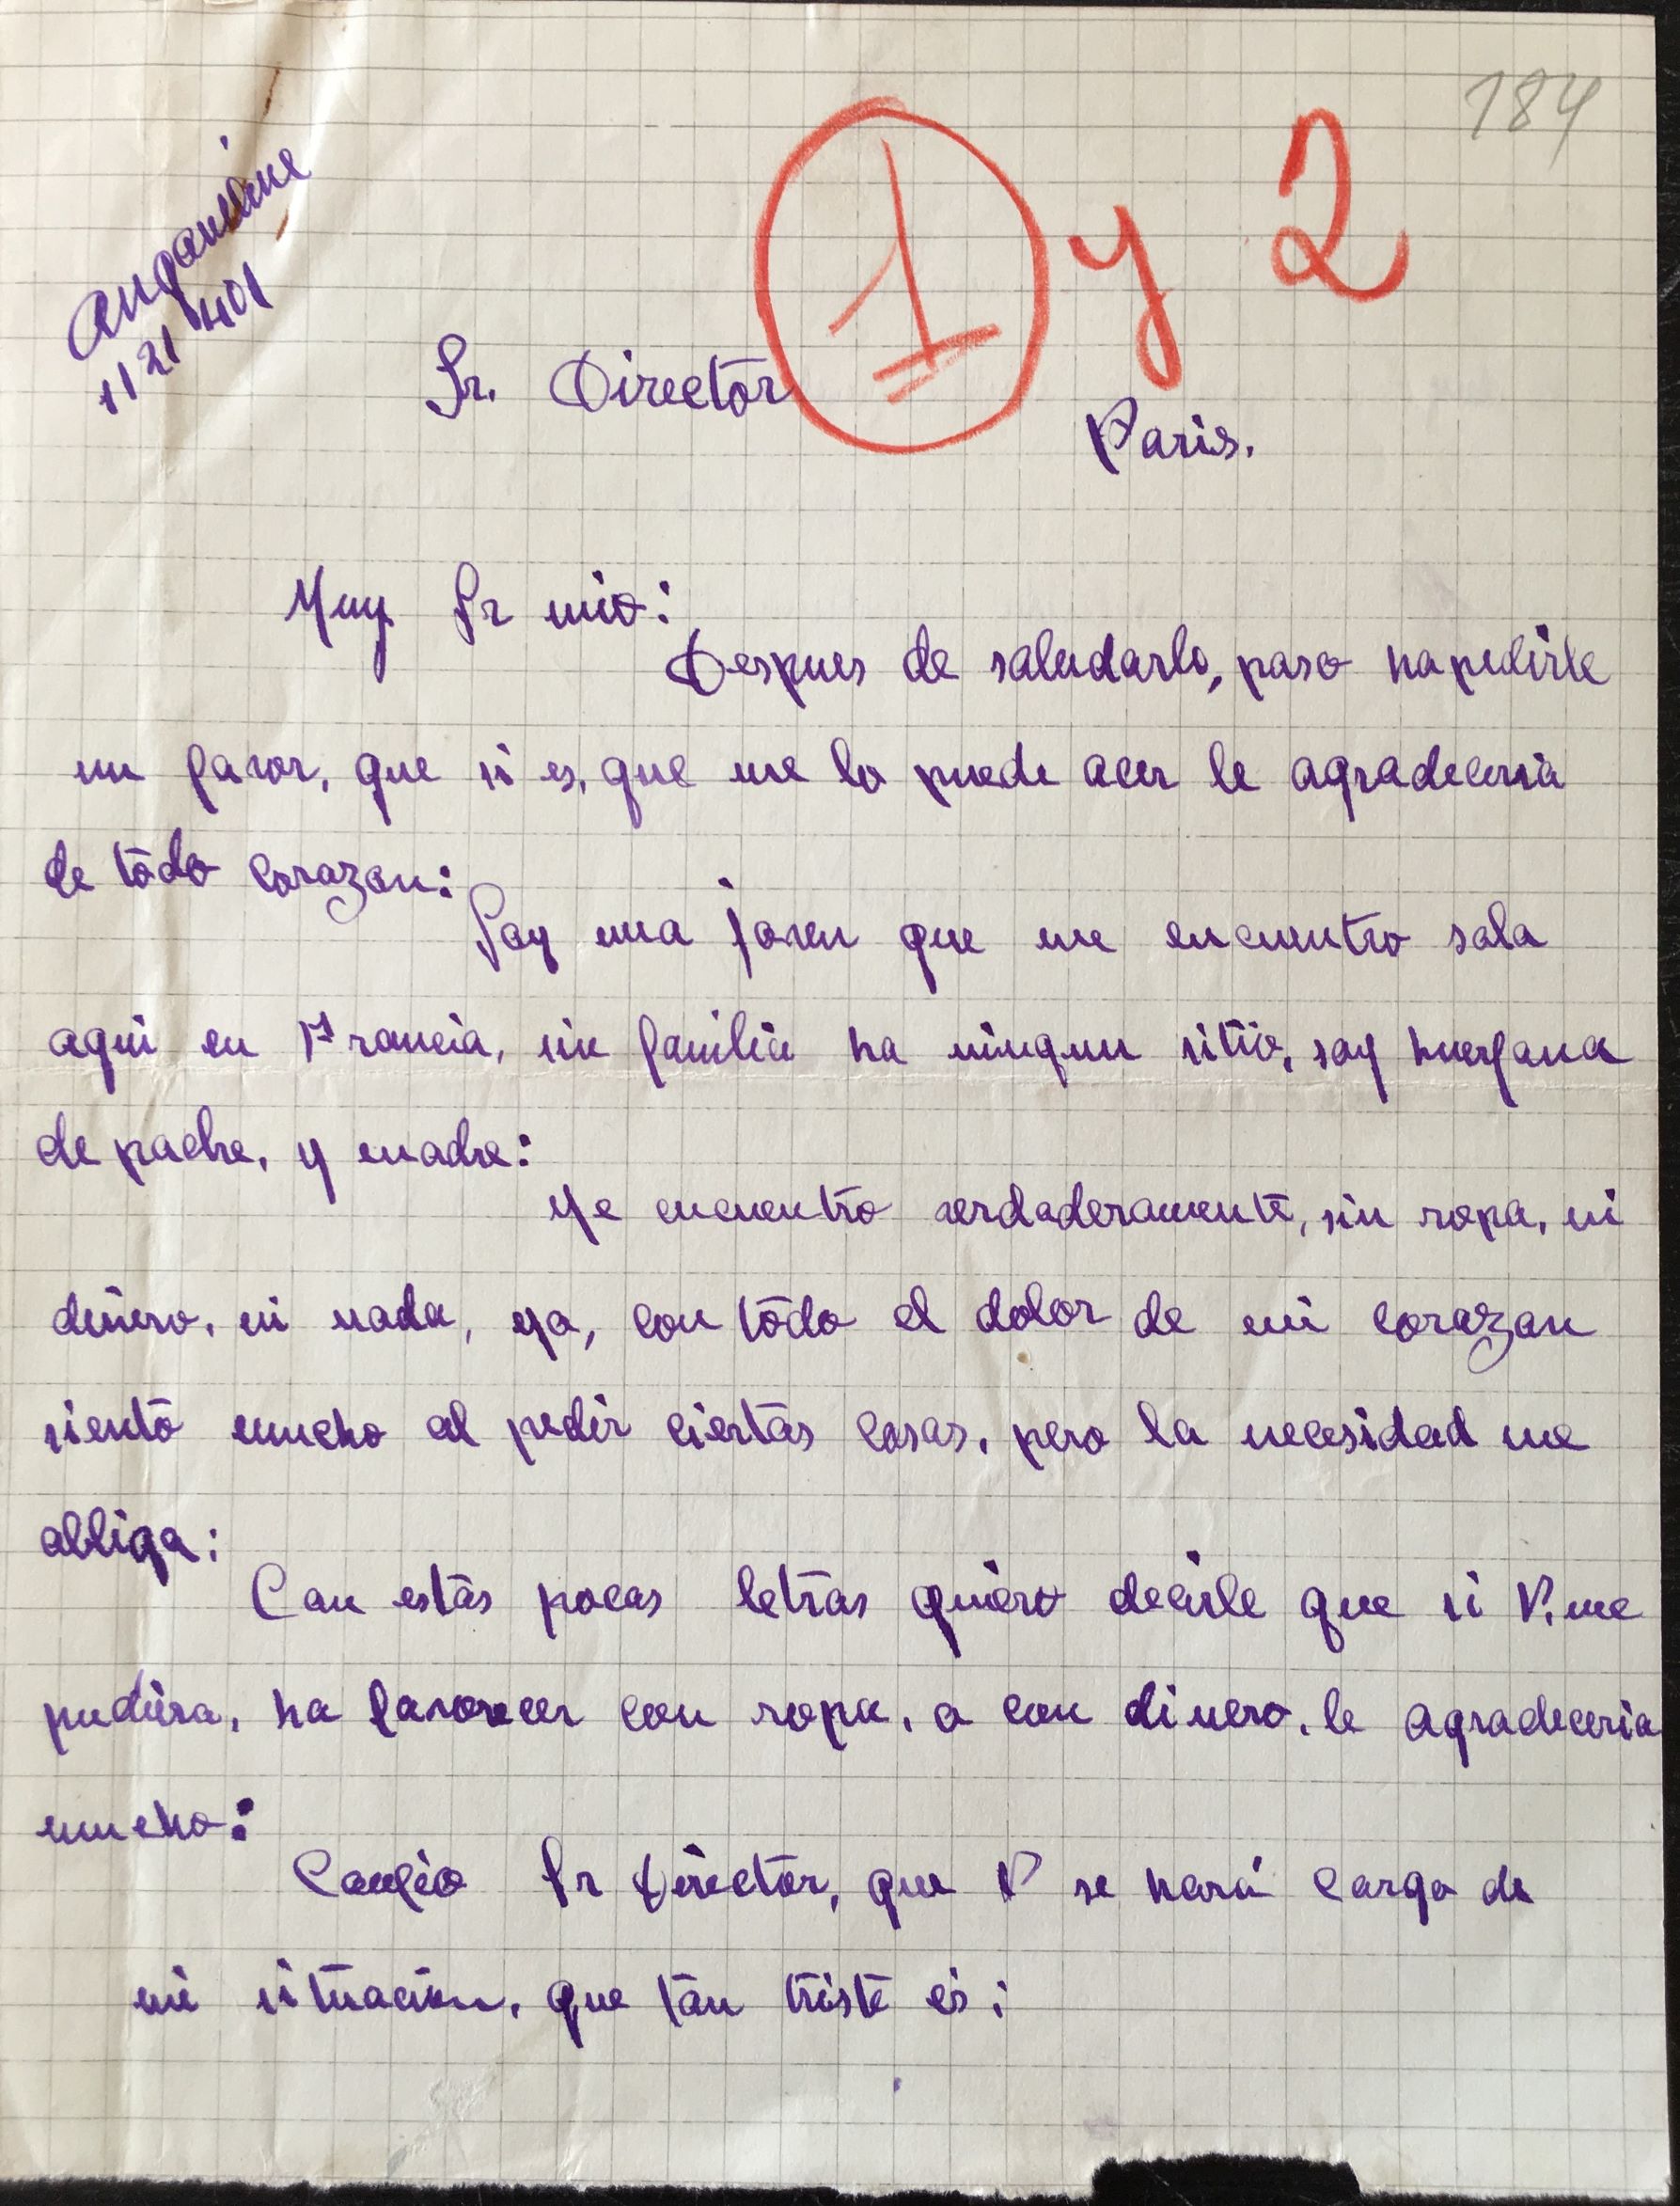 184
1 y 2
Angouleme
11 21 401
Sr. Director
Paris.
Muy Sr mio:
Despues de saludarlo, paso ha pedirle
un favor, que si es, que me lo puede acer le agradeceria
de todo corazon:
Soy una joven que me encuentro sola
aqui en Francia, sin familia ha ningun sitio, soy huerfana
de padre, y madre:
Me encuentro verdaderamente, sin ropa, ni
dinero, ni nada, yo, con todo el dolor de mi corazon
siento mucho el pedir ciertas cosas, pero la necesidad me
obliga:
Con estas pocas letras quiero decirle que si V. me
pudiera, ha favorecer con ropa, o con dinero, le agradeceria
mucho:
Confio Sr Director, que V se hará cargo de
mi situacion, que tan triste es: